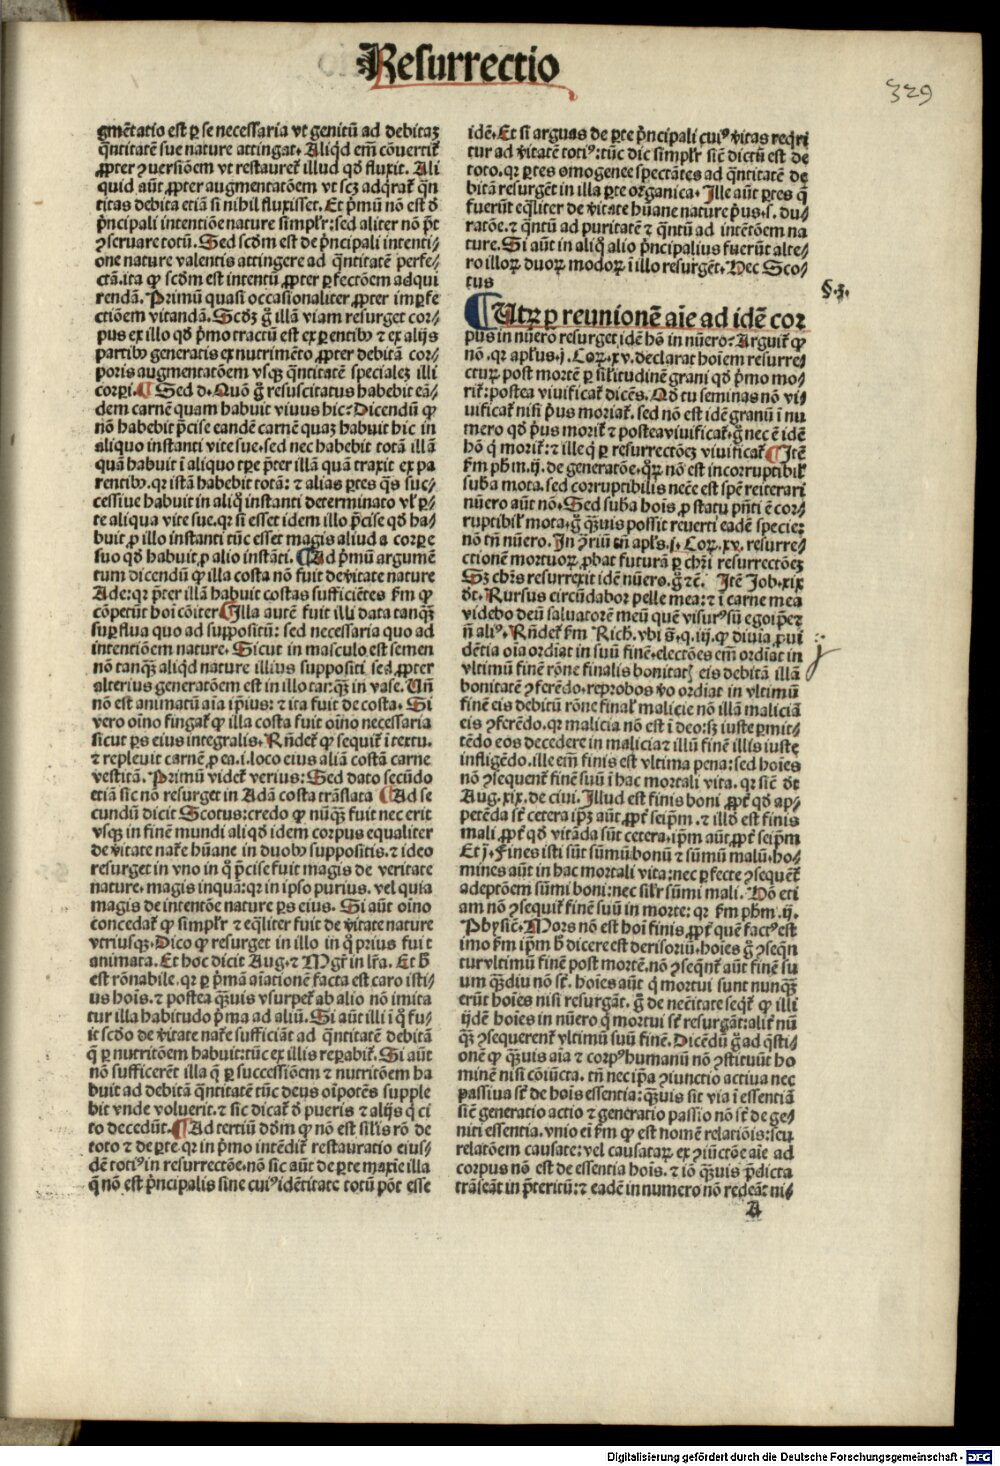 Resurrectio
329
gmētatio est ꝑ se necessaria vt genitū ad debitaꝫ
q̄ntitatē sue nature attingat. Aliqd em̄ cōuertit᷑
ꝓpter ꝯuersiōem vt restauret᷑ illud qd̄ fluxit. Ali
quid aūt ꝓpter augmentatōem vt scꝫ adqrat᷑ q̄n
titas debita etiā si nihil fluxisset. Et pͥmū non est d̄
pͥncipali intentiōe nature simplr̄: sed aliter nō pōt
ꝯseruare totū. Sed scd̄m est de pͥncipali intenti-
one nature valentis attingere ad q̄ntitatē perfe-
ctā. ita ꝙ scd̄m est intentū ꝓpter ꝑfectōem adqui
rendā. Primū quasi occasionaliter ꝓpter imꝑfe
ctiōem vitandā. Scd̄ꝫ g̊ illā viam resurget cor-
pus ex illo qd̄ pͥmo tractū est ex ꝑentibꝰ ⁊ ex alijs
partibꝰ generatis ex nutrimēto ꝓpter debitā cor-
poris augmentatōem vsqꝫ q̄ntitatē specialeꝫ illi
corpi. ¶ Sed d. Quō g̊ resuscitatus habebit eā-
dem carnē quam habuit viuus hic? Dicendū ꝙ
nō habebit p̄cise eandē carnē quaꝫ habuit hic in
aliquo instanti vite sue. sed nec habebit totā illā
quā habuit ī aliquo tꝑe p̄ter illā quā traxit ex pa
rentibꝰ. qr istā habebit totā: ⁊ alias ꝑtes q̄s suc-
cessiue habuit in aliq̊ instanti determinato vl̄ ꝑ-
te aliqua vite sue. qr si esset idem illo p̄cise qd̄ ha-
buit ꝓ illo instanti tūc esset magis aliud a corꝑe
suo qd̄ habuit ꝓ alio instāti. ¶ Ad pͥmū argumē
tum dicendū ꝙ illa costa nō fuit de vitate nature
Ade: qr p̄ter illā habuit costas sufficiētes ẜm ꝙ
cōpetūt hoī cōiter ¶ Illa autē fuit illi data tanqꝫ
suꝑflua quo ad suppositū: sed necessaria quo ad
intentiōem nature. Sicut in masculo est semen
nō tanqꝫ aliqd nature illius suppositi sed ꝓpter
alterius generatōem est in illo tanqꝫ in vase. Vn̄
nō est animatū aīa ipsius: ⁊ ita fuit de costa. Si
vero oīno fingat᷑ ꝙ illa costa fuit oīno necessaria
sicut ꝑs eius integralis. Rn̄det᷑ ꝙ sequit᷑ ī textu.
⁊ repleuit carnē ꝓ ea. i. loco eius aliā costā carne
vestitā. Primū videt᷑ verius: Sed dato secūdo
etiā sic nō resurget in Adā costa trāslata ¶ Ad se
cundū dicit Scotus: credo ꝙ nūqꝫ fuit nec erit
vsqꝫ in finē mundi aliqd idem corpus equaliter
de vitate nat᷑e hūane in duobꝰ suppositis. ⁊ ideo
resurget in vno in q̊ p̄cise fuit magis de veritate
nature. magis inquā: qr in ipso purius. vel quia
magis de intentōe nature ꝑs eius. Si aūt oīno
concedat᷑ ꝙ simplr̄ ⁊ eq̄liter fuit de vitate nature
vtriusqꝫ. Dico ꝙ resurget in illo in q̊ prius fuit
animata. Et hoc dicit Aug. ⁊ Mgr̄ in lr̄a. Et h̄
est rōnabile. qr ꝑ pͥmā aīationē facta est caro isti-
us hoīs. ⁊ postea qꝫuis vsurpet᷑ ab alio nō imita
tur illa habitudo pͥma ad aliū. Si aūt illi ī q̊ fu-
it scd̄o de vitate nat᷑e sufficiāt ad q̄ntitatē debitā
q̄ ꝑ nutritōem habuit: tūc ex illis reꝑabit᷑. Si aūt
nō sufficerēt illa q̄ ꝑ successiōem ⁊ nutritōem ha
buit ad debitā q̄ntitatē tūc deus oīpotēs supple
bit vnde voluerit. ⁊ sic dicat᷑ d̄ pueris ⁊ alijs q̄ ci
to decedūt. ¶ Ad tertiū dd̄m ꝙ nō est sil̄is rō de
toto ⁊ de ꝑte. qr in pͥmo intēdit᷑ restauratio eius-
dē totiꝰ in resurrectōe. nō sic aūt de ꝑte maxīe illa
q̄ nō est pͥncipalis sine cuiꝰ idētitate totū pōt esse
idē. Et si arguas de ꝑte pͥncipali cuiꝰ vitas reqͥri
tur ad vitatē totiꝰ: tūc dic simplr̄ sic̄ dictū est de
toto. qr ꝑtes omogenee spectātes ad q̄ntitatē de
bitā resurgēt in illa ꝑte organica. Ille aūt ꝑtes q̄
fuerūt eq̄liter de vitate hūane nature pͥus. s. du-
ratōe. ⁊ q̄ntū ad puritatē ⁊ q̄ntū ad intētōem na
ture. Si aūt in aliq̊ alio pͥncipalius fuerūt alte-
ro illoꝝ duoꝝ modoꝝ ī illo resurgēt. Hec Sco-
tus
§.3.
¶ Utrꝫ ꝑ reunionē aīe ad idē cor
pus in nūero resurget idē hō in nūero? Arguit᷑ ꝙ
nō. qr apl̄us. j. Coꝝ. xv. declarat hoīem resurre-
cturꝫ post mortē ꝑ sil̄itudinē grani qd̄ pͥmo mo-
rit᷑: postea viuificat᷑ dicēs. Qd̄ tu seminas nō vi-
uificat᷑ nisi pͥus moriat᷑. sed nō est idē granū ī nu
mero qd̄ pͥus morit᷑ ⁊ postea viuificat᷑. g̊ nec ē idē
hō q̄ morit᷑: ⁊ ille q̄ ꝑ resurrectōeꝫ viuificat᷑ ¶ Itē
ẜm ph̄m. ij. de generatōe. q̊ꝝ nō est incorruptibil᷑
sub̄a mota. sed corruptibilis necē est spē reiterari
nūero aūt nō. Sed sub̄a hoīs ꝓ statu pn̄ti ē cor-
ruptibil᷑ mota. g̊ qꝫuis possit reuerti eadē specieꝫ
nō tn̄ nūero. In ꝯriū tn̄ apl̄s. j. Coꝝ. xv. resurre-
ctionē mortuoꝝ ꝓbat futurā ꝑ chr̄i resurrectōeꝫ
Sꝫ chr̄s resurrexit idē nūero. g̊ ⁊c̄. Itē Job. xix
dr̄. Rursus circūdabor pelle mea: ⁊ ī carne mea
videbo deū saluatorē meū quē visurꝰ sū ego ip̄e ⁊
n̄ aliꝰ. Rn̄det᷑ ẜm Rich. vbi s̄. q. iij. ꝙ diuīa ꝓui
dētia oīa ordīat in suū finē. electōes em̄ ordīat in
vltimū finē rōne finalis bonitatꝭ eis debitā illā
bonitatē ꝯferēdo. reprobos vo ordīat in vltimū
finē eis debitū rōne final᷑ malicie nō illā maliciā
eis ꝯferēdo. qr malicia nō est ī deo: sꝫ iuste ꝑmit-
tēdo eos decedere in malicia ⁊ illū finē illis iuste
infligēdo. ille em̄ finis est vltima pena: sed hoīes
nō ꝯsequent᷑ finē suū ī hac mortali vita. qr sic̄ dt̄
Aug. xix. de ciui. Illud est finis boni ꝓpt̄ qd̄ ap-
petēda sūt cetera ip̄ꝫ aūt ꝓpt̄ seip̄m. ⁊ illd̄ est finis
mali ꝓpt̄ qd̄ vitāda sūt cetera. ip̄m aūt ꝓpt̄ seip̄m
Et j. Fines isti sūt sūmū bonū ⁊ sūmū malū. ho-
mines aūt in hac mortali vita: nec ꝑfecte ꝯsequēt᷑
adeptōem sūmi boni: nec sil̄r sūmi mali. Hō eti
am nō ꝯsequit᷑ finē suū in morte: qr ẜm ph̄m. ij.
Physic̄. Mors nō est hoī finis ꝓpt̄ quē factꝰ est
imo ẜm ip̄m h̄ dicere est derisoriū. hoīes g̊ ꝯseqn̄
tur vltimū finē post mortē. nō ꝯseqn̄t᷑ aūt finē su
um qꝫdiu nō sūt. hoīes aūt q̄ mortui sunt nunqꝫ
erūt hoīes nisi resurgāt. g̊ de necitate seqt᷑ ꝙ illi
ijdē hoīes in nūero q̄ mortui sūt resurgāt: alit᷑ nū
qꝫ ꝯsequerent᷑ vltimū suū finē. Dicēdū g̊ ad q̄sti-
onē ꝙ qꝫuis aīa ⁊ corpꝰ humanū nō ꝯstituūt ho
minē nisi cōiūcta. tn̄ nec ip̄a ꝯiunctio actiua nec
passiua sūt de hoīs essentia: qꝫuis sit via ī essentiā
sic̄ generatio actio ⁊ generatio passio nō sūt de ge-
niti essentia. vnio ei ẜm ꝙ est nomē relatiōis: seu
relatōem causate: vel causataꝝ ex ꝯiūctōe aīe ad
corpus nō est de essentia hoīs. ⁊ iō qꝫuis p̄dicta
trāseāt in p̄teritū: ⁊ eadē in numero nō redeāt: ni-
A
Digitalisierung gefördert durch die Deutsche Forschungsgemeinschaft - DFG